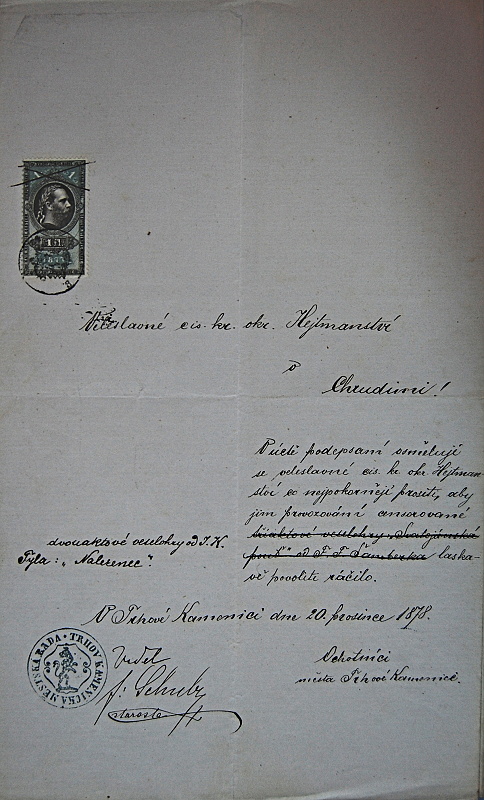 Veleslavné cis. kr. okr. Hejtmanství
v
Chrudimi!
V úctě podepsaní osmělují
se veleslavné cis. kr. okr. Hejtman-
ství co nejpokorněji prositi, aby
jim provozování censurované
tříaktové veselohry „Svatojánská
pouť" od F. F. Šamberka laska-
vě povoliti ráčilo.
dvouaktové veselohry od J. K.
Tyla: „Nalezenec".
V Trhové Kamenici dne 20. prosince 1878.
Ochotníci
města Trhové Kamenice.
Viděl
J. Schulz
starosta
MĚSTSKÁ RADA TRHOVĚ KAMENICKÁ